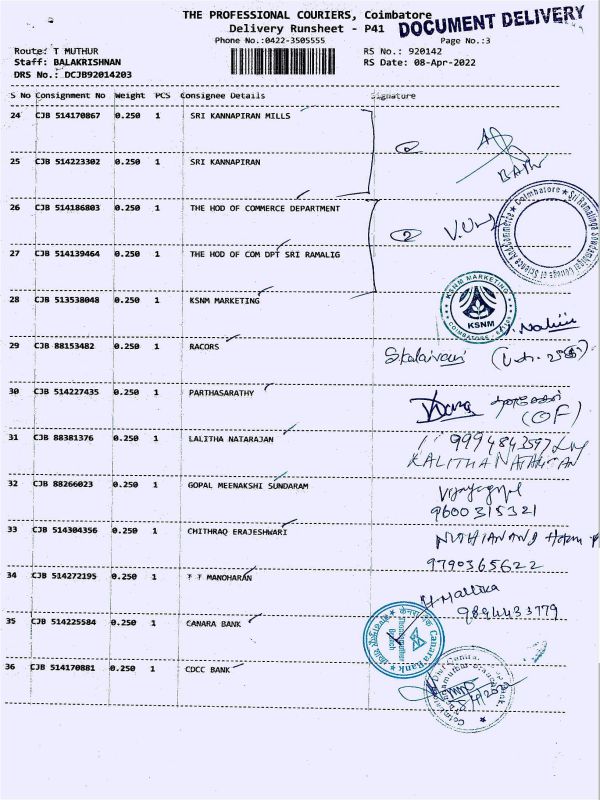 THE PROFESSIONAL COURIERS, Coimbatore
Delivery Runsheet - P41
DOCUMENT DELIVERY
Phone No.:0422-3505555
Page No.:3
Route: T MUTHUR
RS No.: 920142
Staff: BALAKRISHNAN
RS Date: 08-Apr-2022
DRS No.: DCJB92014203
S No Consignment No Weight PCS Consignee Details Signature
24 CJB 514170867 0.250 1 SRI KANNAPIRAN MILLS
25 CJB 514223302 0.250 1 SRI KANNAPIRAN
26 CJB 514186803 0.250 1 THE HOD OF COMMERCE DEPARTMENT
2
27 CJB 514139464 0.250 1 THE HOD OF COM DPT SRI RAMALIG
28 CJB 513538048 0.250 1 KSNM MARKETING
KSNM MARKETING
KSNM
29 CJB 88153482 0.250 1 RACORS
30 CJB 514227435 0.250 1 PARTHASARATHY
(OF)
31 CJB 88381376 0.250 1 LALITHA NATARAJAN
32 CJB 88266023 0.250 1 GOPAL MEENAKSHI SUNDARAM
9600315321
33 CJB 514304356 0.250 1 CHITHRAQ ERAJESHWARI
9790365622
34 CJB 514272195 0.250 1 T T MANOHARAN
Mallika
9894433779
35 CJB 514225584 0.250 1 CANARA BANK
Canara Bank
36 CJB 514170881 0.250 1 CDCC BANK